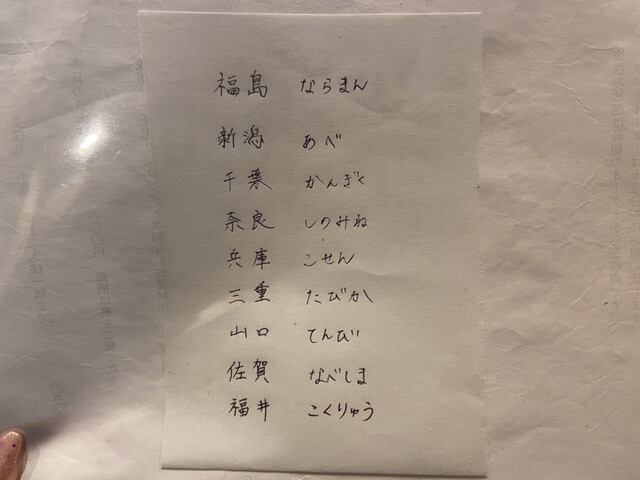 福島 ならまん
新潟 あべ
千葉 かんぎく
奈良 しのみね
兵庫 こせん
三重 たびか
山口 てんび
佐賀 なべしま
福井 こくりゅう